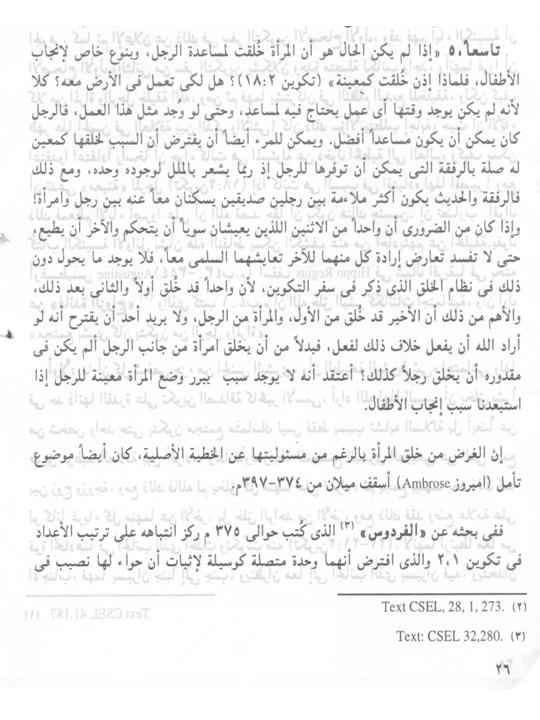 تاسعاً،٥ «إذا لم يكن الحال هو أن المرأة خُلقت لمساعدة الرجل، وبنوع خاص لإنجاب
الأطفال، فلماذا إذن خُلقت كمعينة» (تكوين ١٨:٢)؛ هل لكى تعمل فى الأرض معه؟ كلا
لأنه لم يكن يوجد وقتها أى عمل يحتاج فيه لمساعد، وحتى لو وُجد مثل هذا العمل، فالرجل
كان يمكن أن يكون مساعداً أفضل. ويمكن للمرء أيضاً أن يفترض أن السبب لخلقها كمعين
له صلة بالرفقة التى يمكن أن توفرها للرجل إذ ربما يشعر بالملل لوجوده وحده، ومع ذلك
فالرفقة والحديث يكون أكثر ملاءمة بين رجلين صديقين يسكنان معاً عنه بين رجل وامرأة؟
وإذا كان من الضرورى أن واحداً من الاثنين اللذين يعيشان سوياً أن يتحكم والآخر أن يطيع،
حتى لا تفسد تعارض إرادة كل منهما للآخر تعايشهما السلمى معاً، فلا يوجد ما يحول دون
ذلك فى نظام الخلق الذى ذكر فى سفر التكوين، لأن واحداً قد خُلق أولاً والثانى بعد ذلك،
والأهم من ذلك أن الأخير قد خُلق من الأول، والمرأة من الرجل، ولا يريد أحد أن يقترح أنه لو
أراد الله أن يفعل خلاف ذلك لفعل، فبدلاً من أن يخلق امرأة من جانب الرجل ألم يكن فى
مقدوره أن يخلق رجلاً كذلك؟ أعتقد أنه لا يوجد سبب يبرر وضع المرأة معينة للرجل إذا
استبعدنا سبب إنجاب الأطفال.
إن الغرض من خلق المرأة بالرغم من مسئوليتها عن الخطية الأصلية، كان أيضاً موضوع
تأمل (امبروز Ambrose) أسقف ميلان من ٣٧٤-٣٩٧م.
ففى بحثه عن «الفردوس» (٣) الذى كُتب حوالى ٣٧٥ م ركز انتباهه على ترتيب الأعداد
فى تكوين ٢،١ والذى افترض أنهما وحدة متصلة كوسيلة لإثبات أن حواء لها نصيب فى
(٢) Text CSEL, 28, 1, 273.
(٣) Text: CSEL 32,280.
٢٦